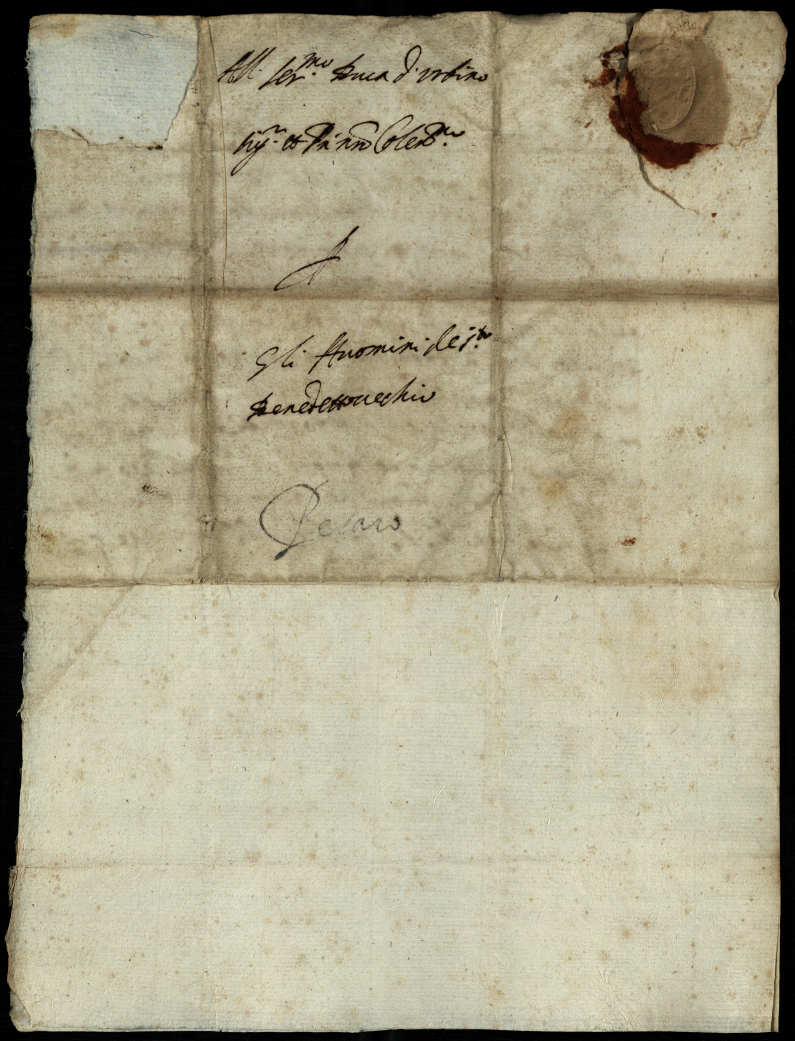 All. Ser.mo Duca d'Urbino
Sig.r et P̃ñ nr̃o Colen.mo
Gli Huomini de s.to
Benedettouechio
Pesaro